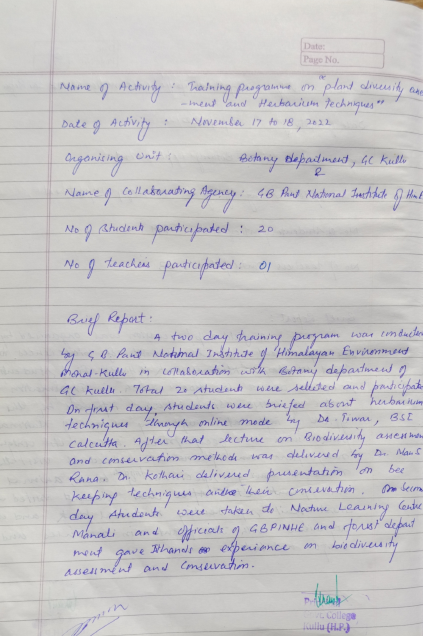 Date:
Page No.
Name of Activity : Training programme on "plant diversity
-ment and Herbarium Techniques"
Date of Activity : November 17 to 18, 2022
Organising Unit : Botany department, GC Kullu
&
Name of Collaborating Agency: GB Pant National Institute of
No of students participated : 20
No of teachers participated : 01
Brief Report:
A two day training program was conducted
by G B Pant National Institute of Himalayan Environment
Mohal-Kullu in collaboration with Botany department of
GC Kullu. Total 20 students were selected and participated
On first day, students were briefed about herbarium
techniques through online mode by Dr. Tiwari, BSI
Calcutta. After that lecture on Biodiversity assessment
and conservation methods was delivered by Dr.
Rana. Dr. Kothari delivered presentation on bee
keeping techniques their conservation. On Second
day students were taken to Nature Learning Centre
Manali and officials of GBPNIHE and forest depart
ment gave experience on biodiversity
assessment and Conservation.
College
Kullu (H.P.)